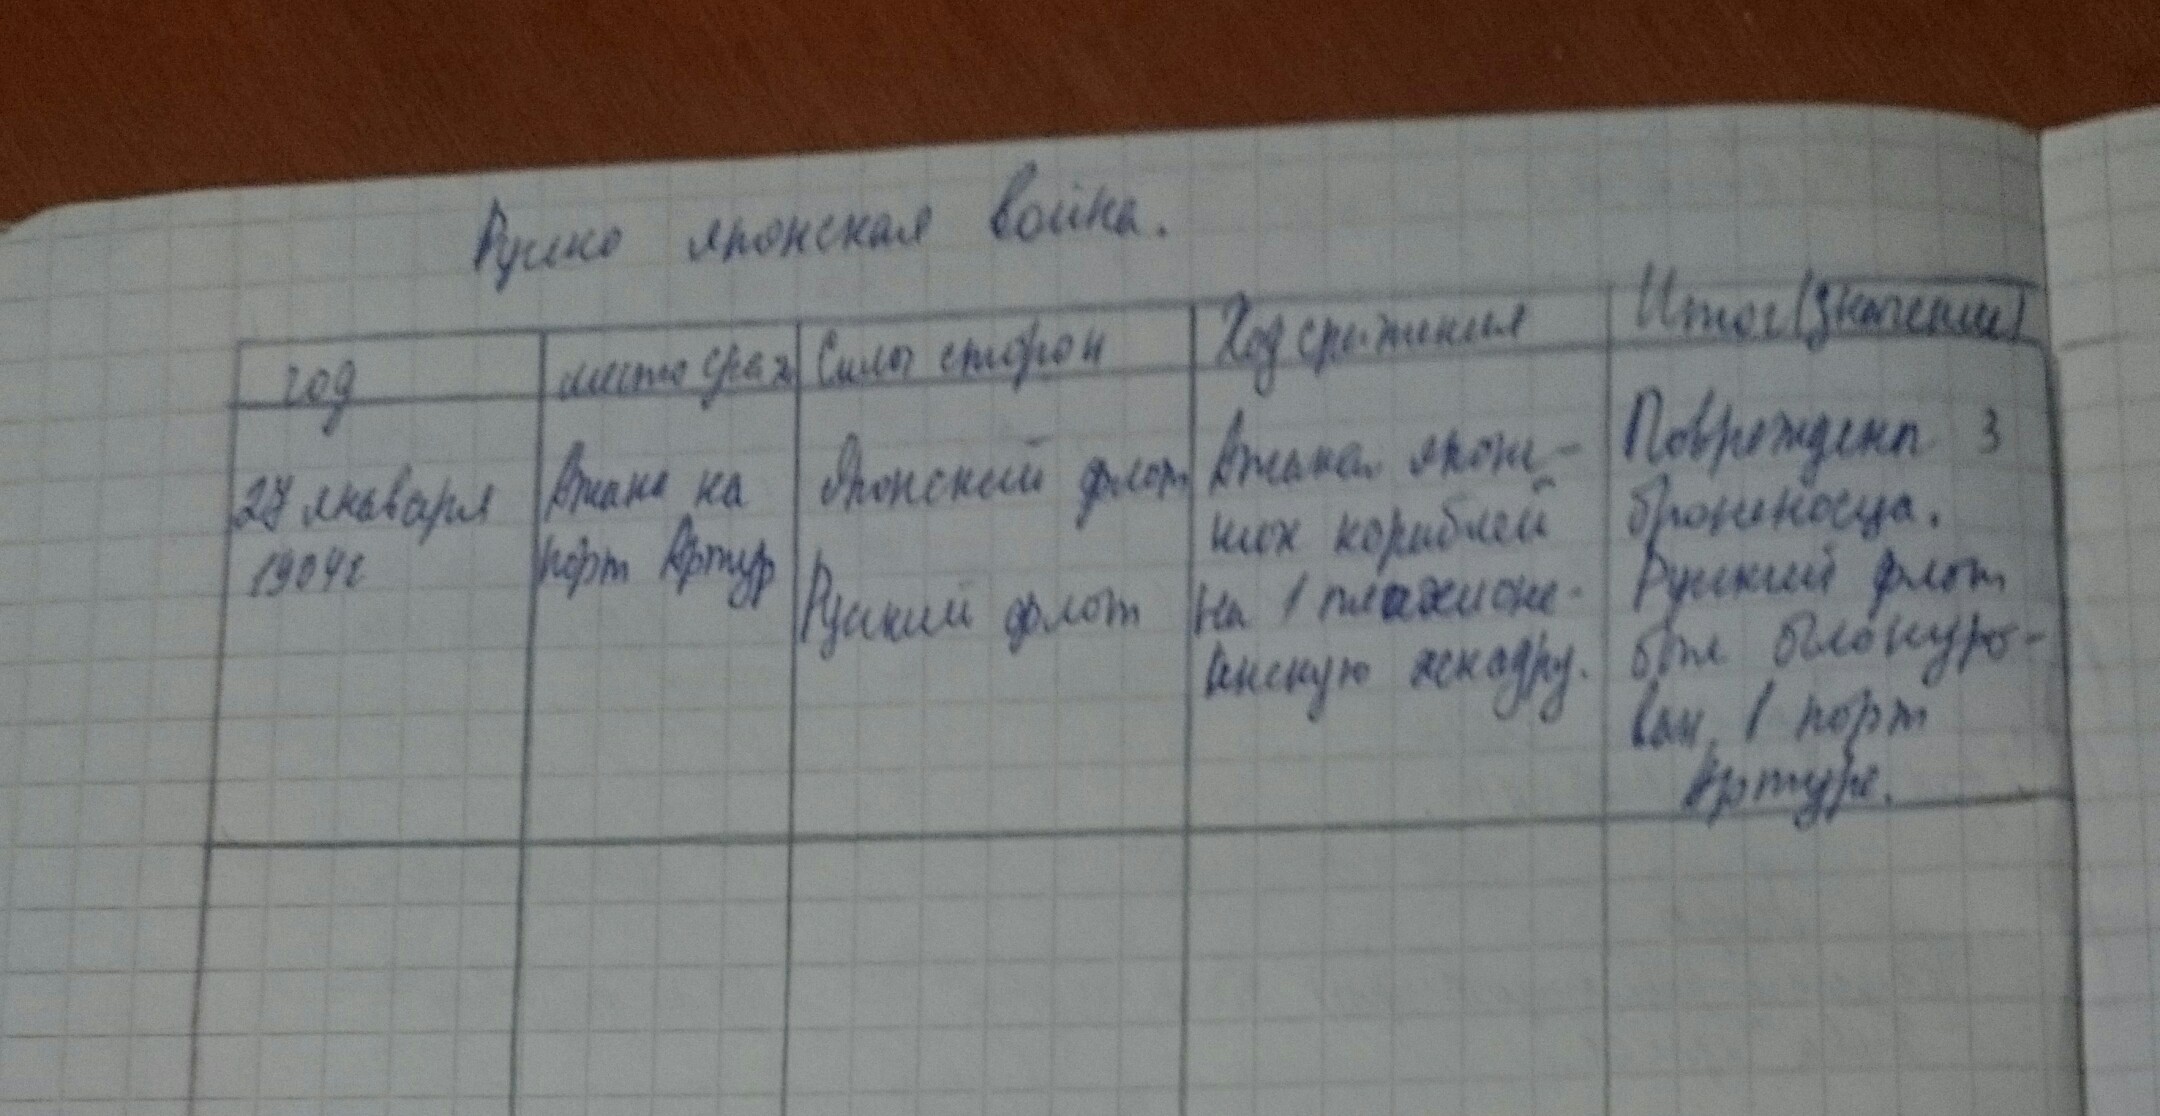 Русско японская война.
год
место сраж
Силы сторон
Ход сражения
Итог (значение)
27 января
1904г
Атака на
порт Артур
Японский флот
Русский флот
Атака япон-
ских кораблей
на 1 тихооке-
анскую эскадру.
Повреждены 3
броненосца.
Русский флот
был блокиро-
ван в порт
Артуре.